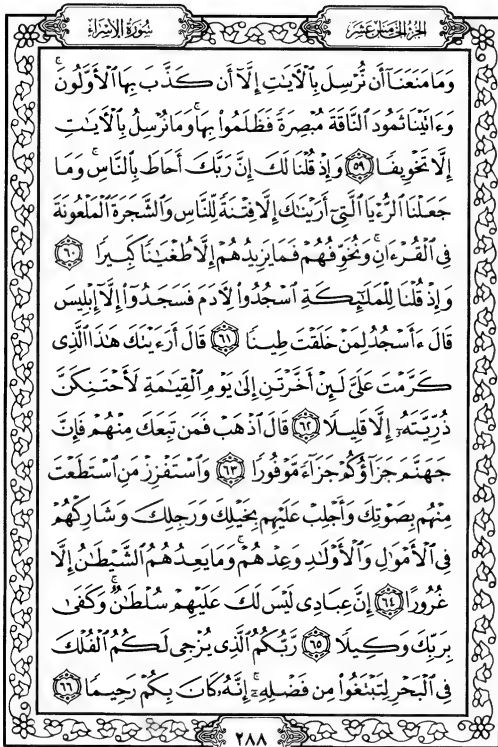 الجزء الخامس عشر
سورة الإسراء
وَمَا مَنَعَنَآ أَن نُّرْسِلَ بِٱلْأٓيَٰتِ إِلَّآ أَن كَذَّبَ بِهَا ٱلْأَوَّلُونَ ۚ
وَءَاتَيْنَا ثَمُودَ ٱلنَّاقَةَ مُبْصِرَةً فَظَلَمُوا۟ بِهَا ۚ وَمَا نُرْسِلُ بِٱلْأٓيَٰتِ
إِلَّا تَخْوِيفًا ٥٩ وَإِذْ قُلْنَا لَكَ إِنَّ رَبَّكَ أَحَاطَ بِٱلنَّاسِ ۚ وَمَا
جَعَلْنَا ٱلرُّءْيَا ٱلَّتِىٓ أَرَيْنَٰكَ إِلَّا فِتْنَةً لِّلنَّاسِ وَٱلشَّجَرَةَ ٱلْمَلْعُونَةَ
فِى ٱلْقُرْءَانِ ۚ وَنُخَوِّفُهُمْ فَمَا يَزِيدُهُمْ إِلَّا طُغْيَٰنًا كَبِيرًا ٦٠
وَإِذْ قُلْنَا لِلْمَلَٰٓئِكَةِ ٱسْجُدُوا۟ لِأَدَمَ فَسَجَدُوٓا۟ إِلَّآ إِبْلِيسَ
قَالَ ءَأَسْجُدُ لِمَنْ خَلَقْتَ طِينًا ٦١ قَالَ أَرَءَيْتَكَ هَٰذَا ٱلَّذِى
كَرَّمْتَ عَلَىَّ لَئِنْ أَخَّرْتَنِ إِلَىٰ يَوْمِ ٱلْقِيَٰمَةِ لَأَحْتَنِكَنَّ
ذُرِّيَّتَهُۥٓ إِلَّا قَلِيلًا ٦٢ قَالَ ٱذْهَبْ فَمَن تَبِعَكَ مِنْهُمْ فَإِنَّ
جَهَنَّمَ جَزَآؤُكُمْ جَزَآءً مَّوْفُورًا ٦٣ وَٱسْتَفْزِزْ مَنِ ٱسْتَطَعْتَ
مِنْهُم بِصَوْتِكَ وَأَجْلِبْ عَلَيْهِم بِخَيْلِكَ وَرَجِلِكَ وَشَارِكْهُمْ
فِى ٱلْأَمْوَٰلِ وَٱلْأَوْلَٰدِ وَعِدْهُمْ ۚ وَمَا يَعِدُهُمُ ٱلشَّيْطَٰنُ إِلَّا
غُرُورًا ٦٤ إِنَّ عِبَادِى لَيْسَ لَكَ عَلَيْهِمْ سُلْطَٰنٌ ۚ وَكَفَىٰ
بِرَبِّكَ وَكِيلًا ٦٥ رَّبُّكُمُ ٱلَّذِى يُزْجِى لَكُمُ ٱلْفُلْكَ
فِى ٱلْبَحْرِ لِتَبْتَغُوا۟ مِن فَضْلِهِۦٓ ۚ إِنَّهُۥ كَانَ بِكُمْ رَحِيمًا ٦٦
٢٨٨